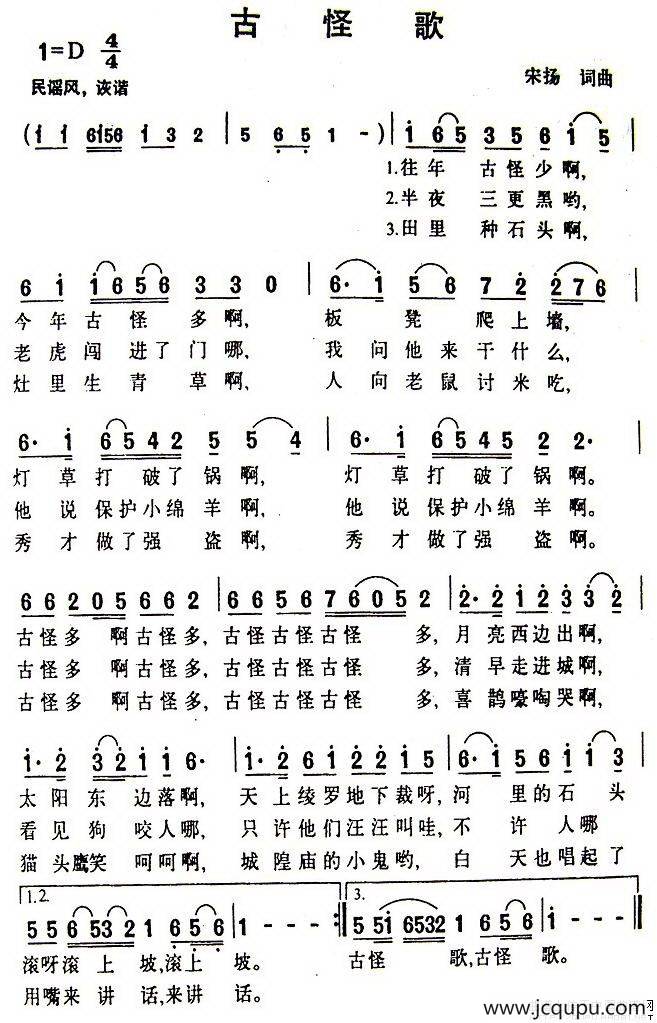 古怪歌
1=D 4/4
民谣风，诙谐
宋扬 词曲
(i i 6i56 i 3 2 | 5 6 5 1 - ) | i 6 5 3 5 6 i 5
1.往年 古怪少啊,
2.半夜 三更黑哟,
3.田里 种石头啊,
6 i i 6 5 6 3 3 0 | 6· i 6 5 7 2 2 7 6
今年古怪多啊, 板 凳爬上墙,
老虎闯进了门哪, 我问他来干什么,
灶里生青草啊, 人向老鼠讨米吃,
6· i 6 5 4 2 5 5 4 | 6· i 6 5 4 5 2 2·
灯草打破了锅啊, 灯草打破了锅啊。
他说保护小绵羊啊, 他说保护小绵羊啊。
秀才做了强盗啊, 秀才做了强盗啊。
6 6 2 0 5 6 6 2 | 6 6 5 6 7 6 0 5 2 | 2· 2 1 2 3 3
古怪多 啊古怪多, 古怪古怪古怪 多, 月亮西边出啊,
古怪多 啊古怪多, 古怪古怪古怪 多, 清早走进城啊,
古怪多 啊古怪多, 古怪古怪古怪 多, 喜鹊嚎啕哭啊,
i· 2 3 2 i i 6· | i· 2 6 i 2 2 i 5 | 6· i 5 6 i i 3
太阳东边落啊, 天上绫罗地下裁呀, 河里的石头
看见狗咬人哪, 只许他们汪汪叫哇, 不许人哪
猫头鹰笑呵呵啊, 城隍庙的小鬼哟, 白天也唱起了
1.2. 3.
5 5 6 5 3 2 1 6 5 6 | 1 - - - :‖ 5 5 i 6 5 3 2 1 6 5 6 | 1 - - - ‖
滚呀滚上坡,滚上坡。 古怪 歌,古怪歌。
用嘴来讲话,来讲话。
www.jcqupu.com